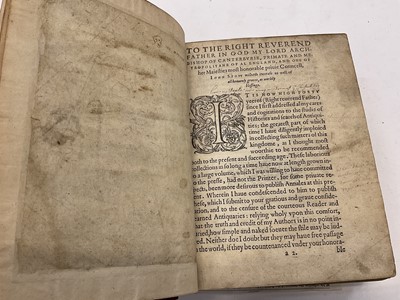 TO THE RIGHT REVEREND
FATHER IN GOD MY LORD ARCH-
BISHOP OF CANTERBURIE, PRIMATE AND ME-
TROPOLITANE OF AL ENGLAND, AND ONE OF
her Maiesties most honorable priuie Counsell,
IOHN STOW wisheth increase as well of
all heauenly graces, as worldly
blessings.
IT IS NOW NIGH FORTY
yeeres (Right reuerend Father)
since I first addressed all my cares
and cogitations to the studie of
Histories and search of Antiqui-
ties: the greatest part of which
time I haue diligently imploied
in collecting such matters of this
kingdome, as I thought most
worthie to be recommended
both to the present and succeeding age. These laborious
collections in so long a time haue now at length growen in-
to a large volume, which I was willing to haue committed
to the presse, had not the Printer, for some priuate re-
spects, been more desirous to publish Annales at this pre-
sent. Wherein I haue condescended to him to publish
these, which I submit to your gratious and graue conside-
ration, and to the censure of the courteous Reader and
learned Antiquaries: relying wholy vpon this comfort,
that the truth and credit of my Authors is in no point in-
iuried, how simple and naked soeuer the stile may be iud-
ged. Neither doe I doubt but they may haue free passage
in the world, if they be countenanced vnder your honora-
a 2. ble